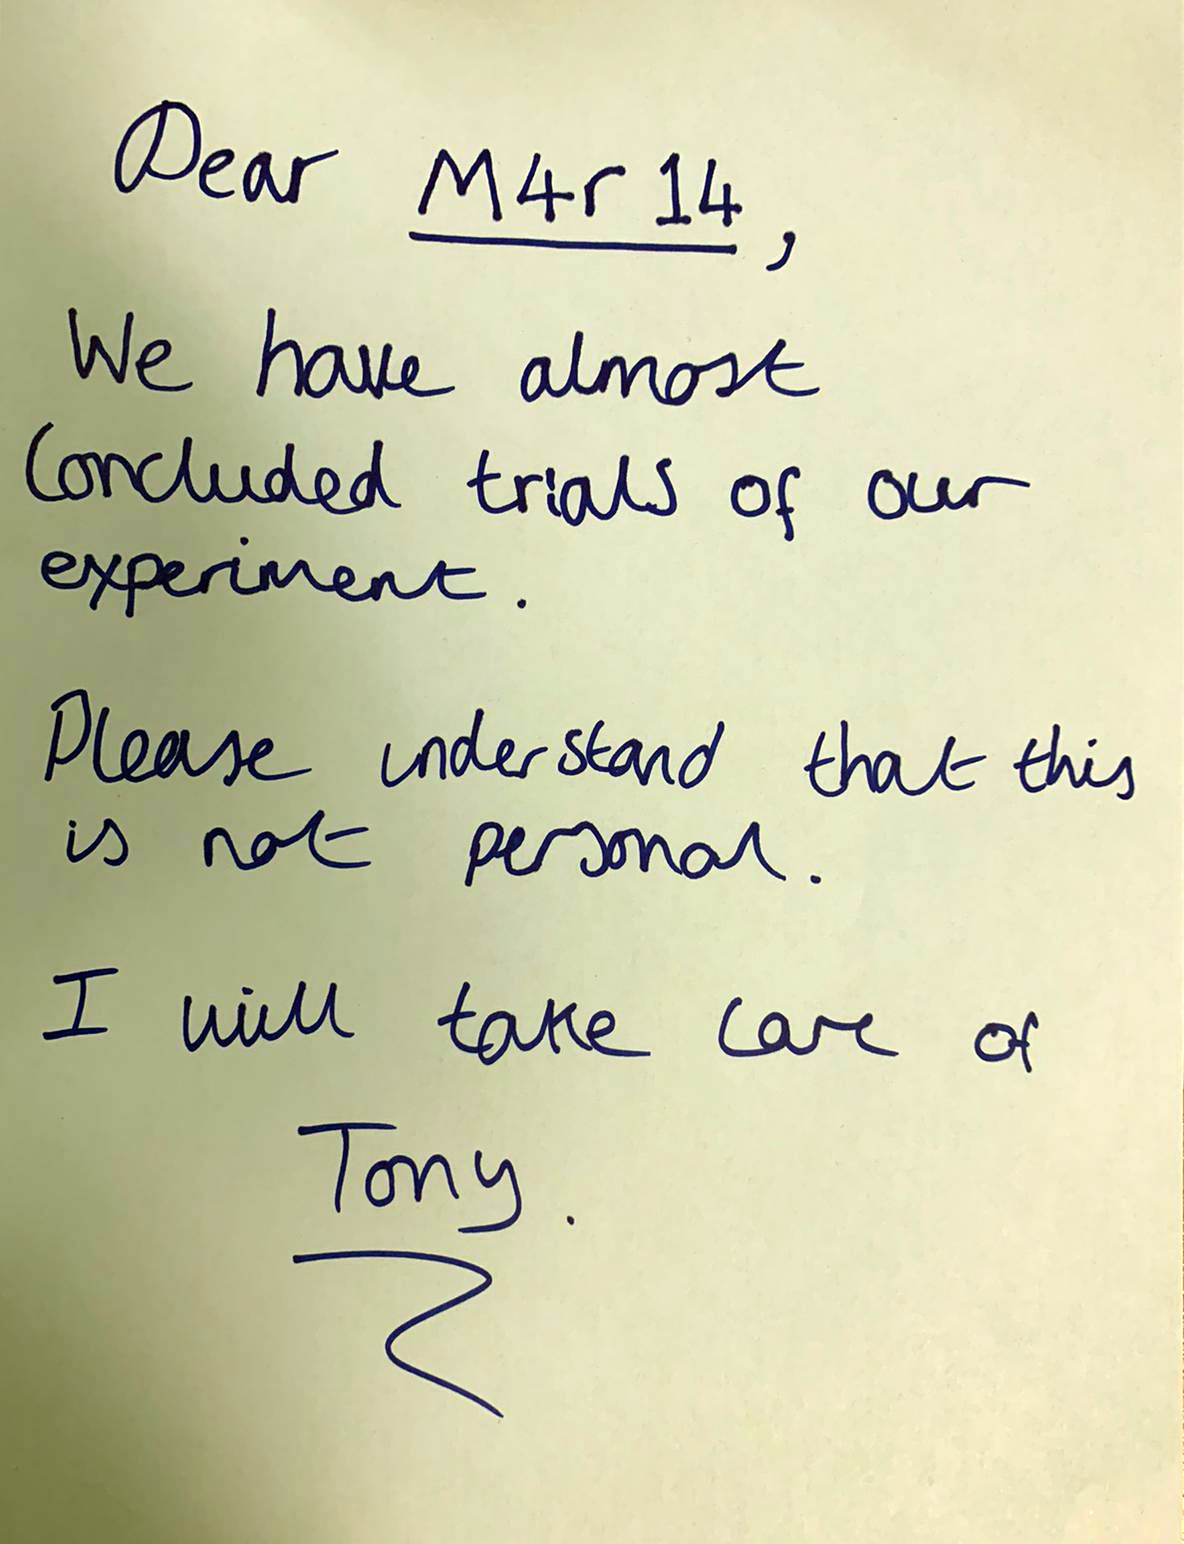 Dear M4r14,
We have almost
concluded trials of our
experiment.
Please understand that this
is not personal.
I will take care of
Tony.